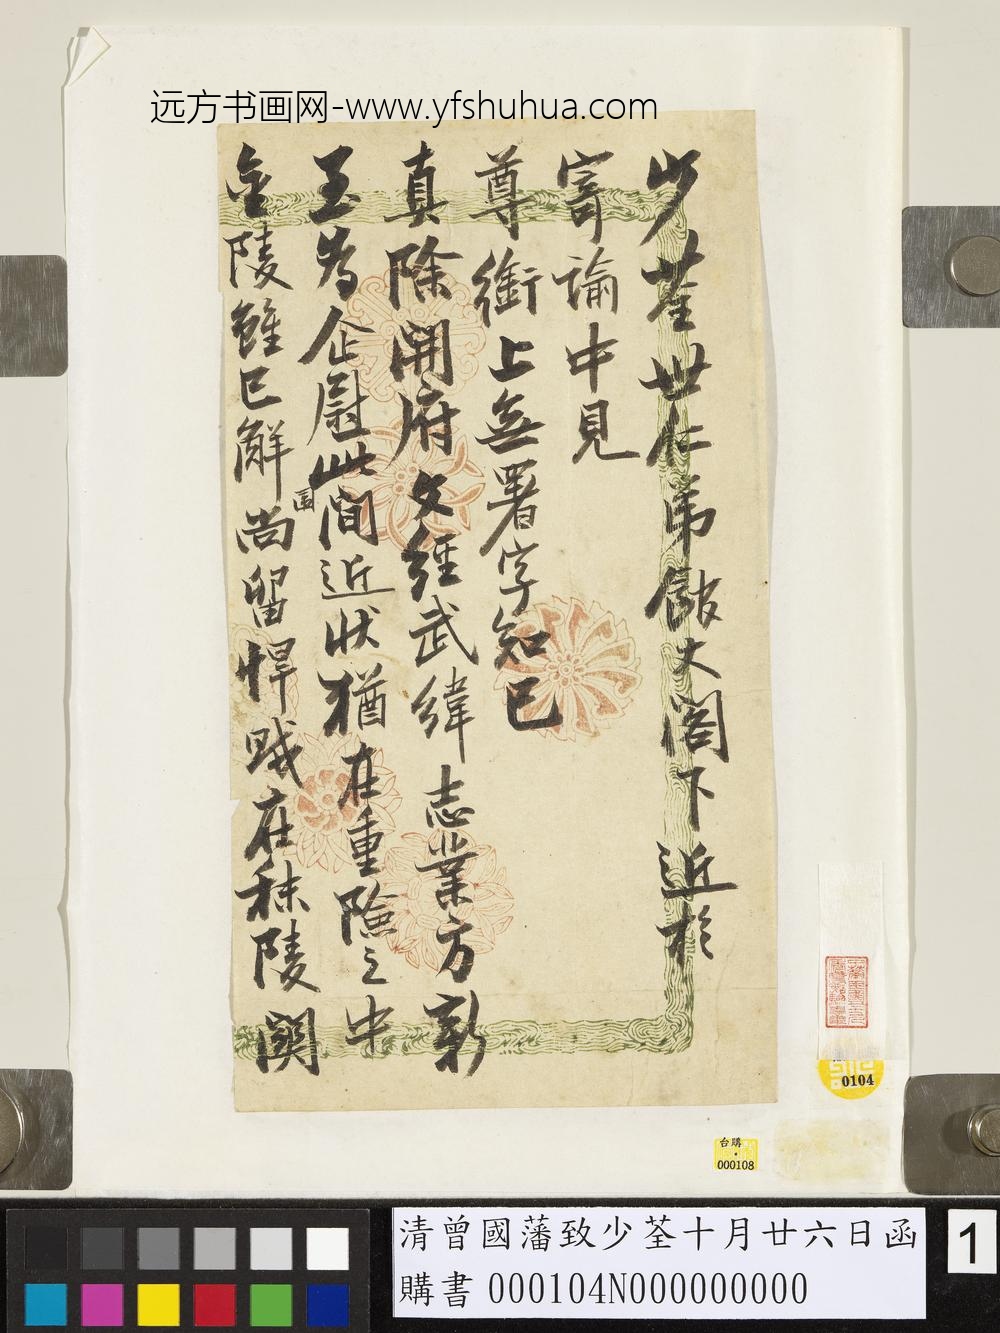 远方书画网-www.yfshuhua.com
少荃世仁弟館丈閣下近於
寄諭中見
尊銜上無署字知已
真除開府文經武緯志業方新
至為企慰此間近狀猶在重險之中
金陵雖已解圍尚留悍賊在秣陵關
0104
台購
000108
清曾國藩致少荃十月廿六日函
購書 000104N000000000
1